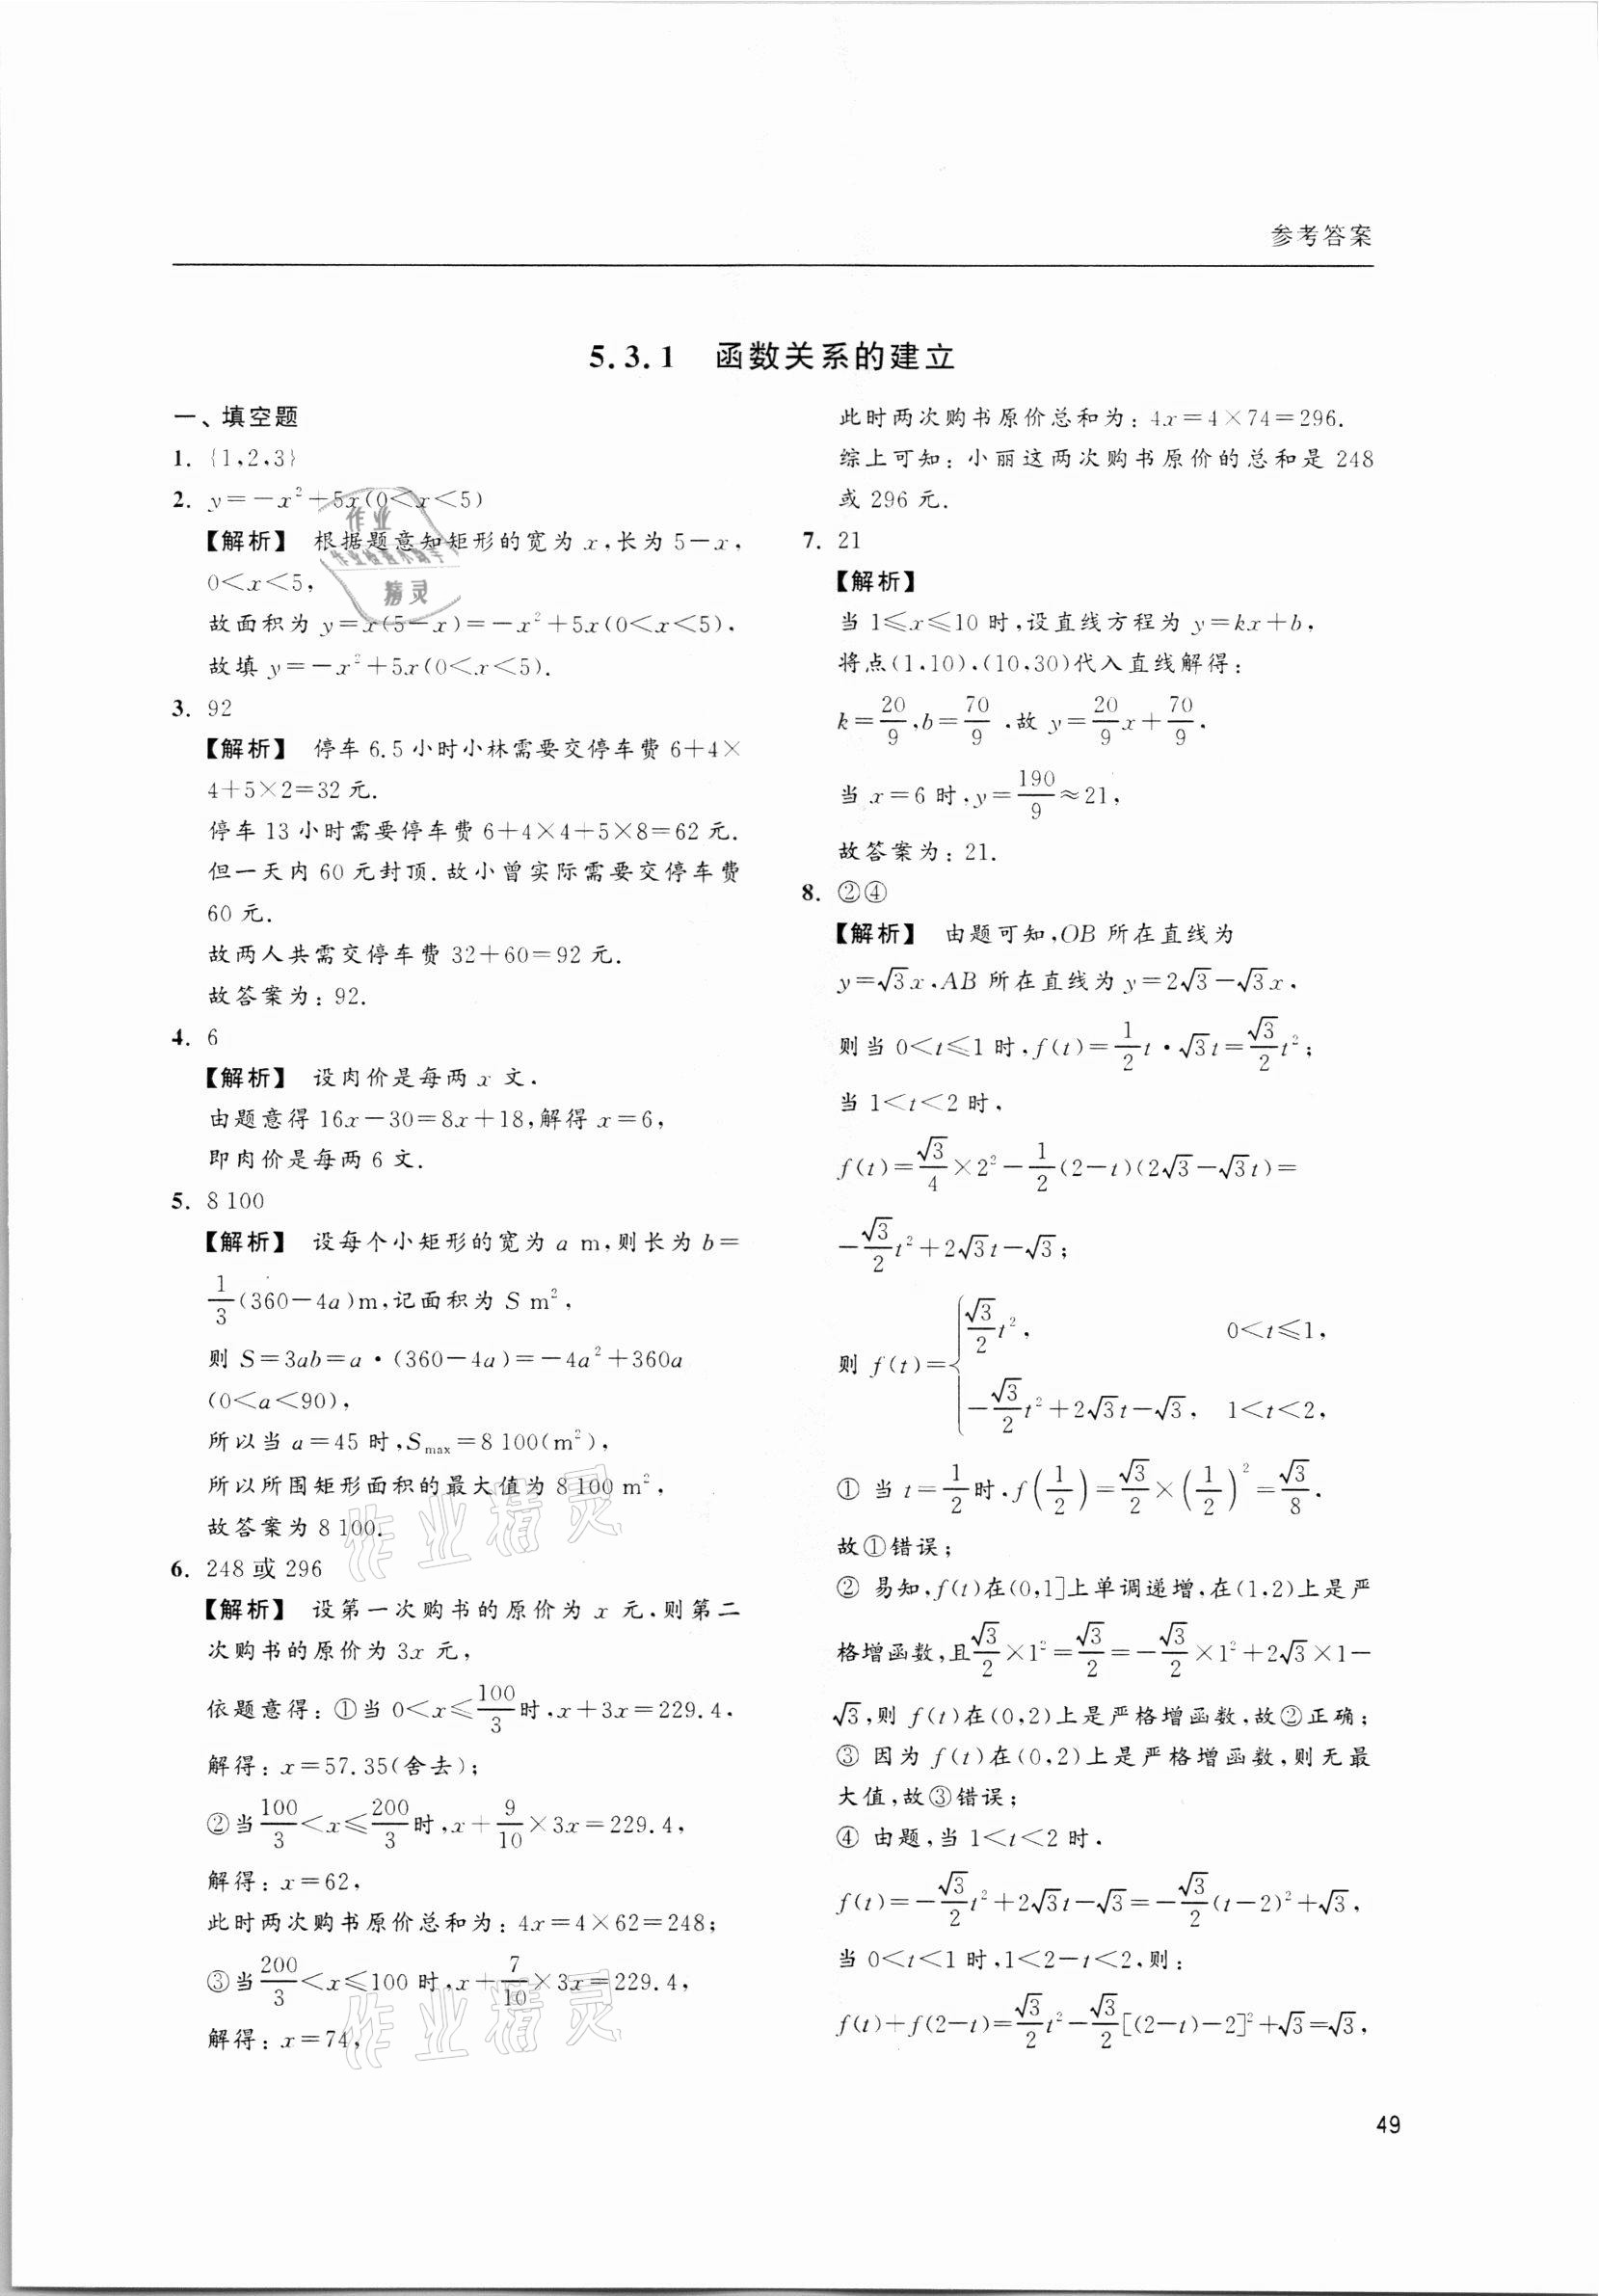 参考答案
5.3.1 函数关系的建立
一、填空题
1. {1,2,3}
2. y=-x²+5x(0<x<5)
【解析】 根据题意知矩形的宽为 x,长为 5-x,
0<x<5,
故面积为 y=x(5-x)=-x²+5x(0<x<5).
故填 y=-x²+5x(0<x<5).
3. 92
【解析】 停车 6.5 小时小林需要交停车费 6+4×
4+5×2=32 元.
停车 13 小时需要停车费 6+4×4+5×8=62 元.
但一天内 60 元封顶.故小曾实际需要交停车费
60 元.
故两人共需交停车费 32+60=92 元.
故答案为: 92.
4. 6
【解析】 设肉价是每两 x 文.
由题意得 16x-30=8x+18,解得 x=6,
即肉价是每两 6 文.
5. 8 100
【解析】 设每个小矩形的宽为 a m,则长为 b=
1/3(360-4a)m,记面积为 S m²,
则 S=3ab=a·(360-4a)=-4a²+360a
(0<a<90),
所以当 a=45 时,Smax=8 100(m²),
所以所围矩形面积的最大值为 8 100 m²,
故答案为 8 100.
6. 248 或 296
【解析】 设第一次购书的原价为 x 元,则第二
次购书的原价为 3x 元,
依题意得: ①当 0<x≤100/3时,x+3x=229.4,
解得: x=57.35(舍去);
②当100/3<x≤200/3时,x+9/10×3x=229.4,
解得: x=62,
此时两次购书原价总和为: 4x=4×62=248;
③当200/3<x≤100 时,x+7/10×3x=229.4,
解得: x=74,
此时两次购书原价总和为: 4x=4×74=296.
综上可知: 小丽这两次购书原价的总和是 248
或 296 元.
7. 21
【解析】
当 1≤x≤10 时,设直线方程为 y=kx+b,
将点(1,10),(10,30)代入直线解得:
k=20/9,b=70/9,故 y=20/9x+70/9.
当 x=6 时,y=190/9≈21,
故答案为: 21.
8. ②④
【解析】 由题可知,OB 所在直线为
y=√3x,AB 所在直线为 y=2√3-√3x,
则当 0<t≤1 时,f(t)=1/2t·√3t=√3/2t²;
当 1<t<2 时,
f(t)=√3/4×2²-1/2(2-t)(2√3-√3t)=
-√3/2t²+2√3t-√3;
则 f(t)={√3/2t², 0<t≤1,
-√3/2t²+2√3t-√3, 1<t<2,
① 当 t=1/2时,f(1/2)=√3/2×(1/2)²=√3/8.
故①错误;
② 易知,f(t)在(0,1]上单调递增,在(1,2)上是严
格增函数,且√3/2×1²=√3/2=-√3/2×1²+2√3×1-
√3,则 f(t)在(0,2)上是严格增函数,故②正确;
③ 因为 f(t)在(0,2)上是严格增函数,则无最
大值,故③错误;
④ 由题,当 1<t<2 时,
f(t)=-√3/2t²+2√3t-√3=-√3/2(t-2)²+√3,
当 0<t<1 时,1<2-t<2,则:
f(t)+f(2-t)=√3/2t²-√3/2[(2-t)-2]²+√3=√3,
作业精灵
作业精灵
作业
精灵
49